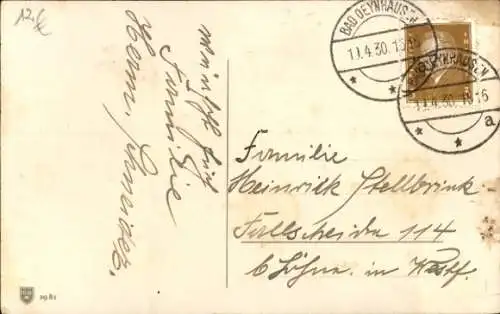 12,
wünscht
Familie
Herm. Schneider.
BAD OEYNHAUSEN
19.4.30.1816
BAD OEYNHAUSEN
19.4.30.1816
a
Familie
Heinrich Stellbrink
Falscheide 114
b Löhne in Westf.
1981